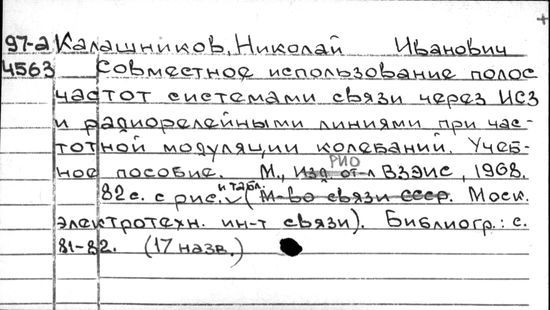 97-2 Калашников, Николай Иванович
4563 Совместное использование полос
частот системами связи через ИСЗ
и радиорелейными линиями при час-
тотной модуляции колебаний. Учеб-
РИО
ное пособие. М., Изд. от-л ВЗЭИС, 1968.
и табл.
82 с. с рис. (М-во связи СССР. Моск.
электротехн. ин-т связи). Библиогр.: с.
81-82. (17 назв.)